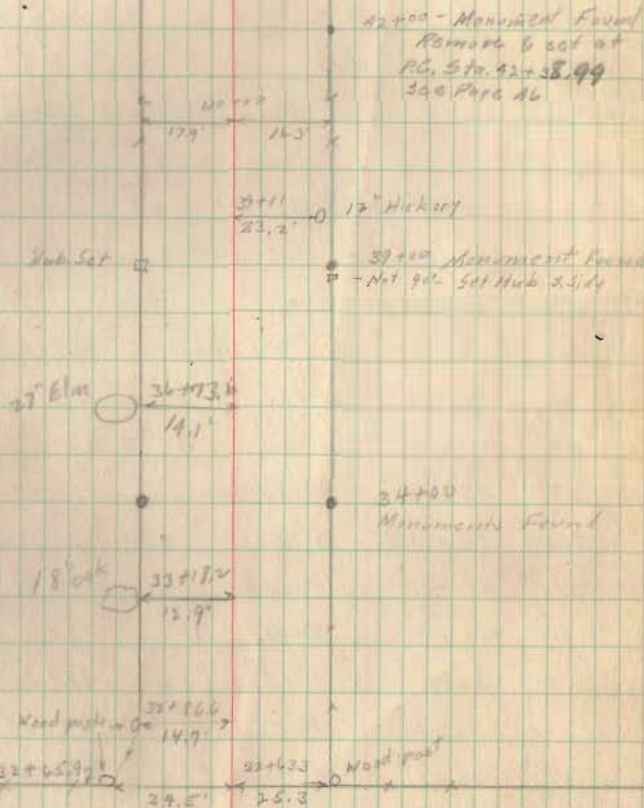 42+00 - Monument Found
Remove & set at
P.C. Sta. 42+38.99
See Page 46
17.9'
39+11
23.2'
12" Hickory
Hub Set
39+00 Monument Found
- Not good Set Hub S. Side
27" Elm
36+73.6
14.1'
34+00
Monuments Found
18" oak
33+18.2
12.9'
Wood posts
32+86.6
14.7'
32+65.9
32+63.3
Wood post
25.3